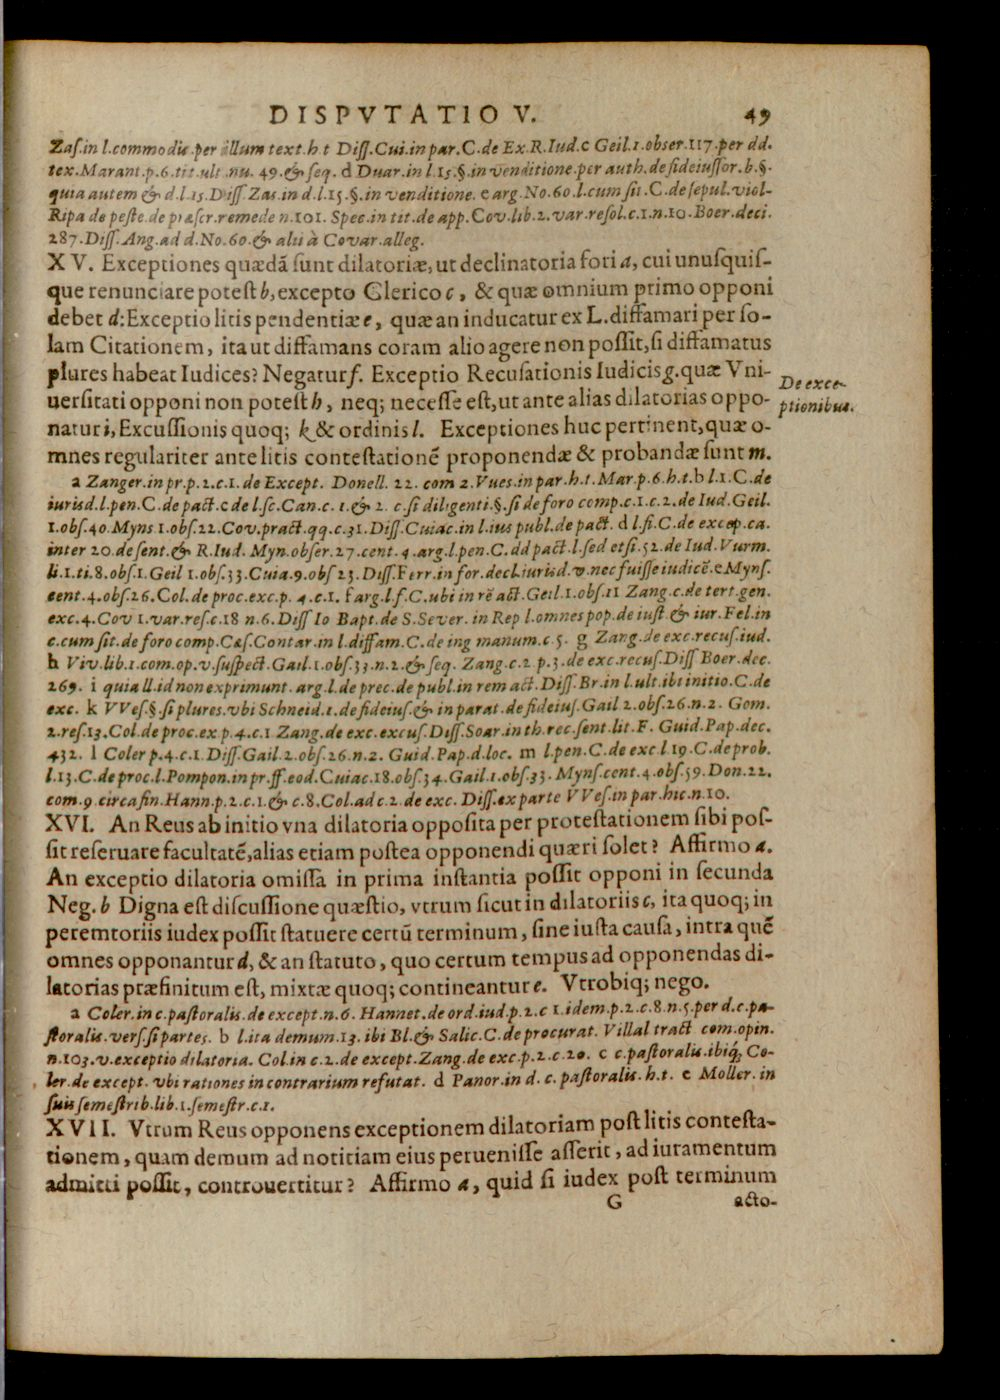 DISPVTATIO V. 49
Zas.in l.commodis.per illum text.h.t Diss.Cui.in par.C.de Ex.R.Iud.c Geil.1.obser.117.per dd.
tex.Marant.p.6.tit.ult.nu. 49.& seq. d Duar.in l.15.§.in venditione.per auth.de fideiussor.b.§.
quia autem & d.l.15.Diss.Zas.in d.l.15.§.in venditione. e arg.No.60.l.cum sit.C.de sepul.viol-
Ripa de peste.de præscr.remede n.101. Spec.in tit.de app.Cov.lib.2.var.resol.c.1.n.10.Boer.deci.
287.Diss.Ang.ad d.No.60.& alii à Covar.alleg.
XV. Exceptiones quædā sunt dilatoriæ, ut declinatoria fori a, cui unusquis-
que renunciare potest b, excepto Clerico c, & quæ omnium primo opponi
debet d: Exceptio litis pendentiæ e, quæ an inducatur ex L. diffamari per so-
lam Citationem, ita ut diffamans coram alio agere non possit, si diffamatus
plures habeat Iudices? Negatur f. Exceptio Recusationis Iudicis g. quæ Vni-
uersitati opponi non potest h, neq; necesse est, ut ante alias dilatorias oppo-
natur i, Excussionis quoq; k & ordinis l. Exceptiones huc pertinent, quæ o-
mnes regulariter ante litis contestationē proponendæ & probandæ sunt m.
De exce-
ptionibus.
a Zanger.in pr.p.2.c.1.de Except. Donell. 22. com 2. Vues.in par.h.t. Mar.p.6.h.t.b l.1.C.de
iurisd.l.pen.C.de pact.c de l.sc.Can.c. 1.& 2. c.si diligenti.§.si de foro comp.c.1.c.2.de Iud.Geil.
1.obs.40.Myns 1.obs.22.Cov.pract.qq.c.31.Diss.Cuiac.in l.ius publ.de pact. d l.fi.C.de excep.ca.
inter 20.de sent.& R.Iud. Myn.obser.27.cent.4.arg.l.pen.C.dd pact.l.sed etsi.52.de Iud.Vurm.
li.1.ti.8.obs.1.Geil 1.obs.33.Cuia.9.obs 23.Diss.Ferr.in for.decl.iurisd.v.nec fuisse iudicē.e Myns.
cent.4.obs.26.Col.de proc.exc.p. 4.c.1. f arg.l.f.C.ubi in rē act.Geil.1.obs.11 Zang.c.de tert.gen.
exc.4.Cov 1.var.res.c.18 n.6.Diss Io Bapt.de S.Sever. in Rep l.omnes pop.de iust & iur.Fel.in
c.cum sit.de foro comp.Cæs.Contar.in l.diffam.C.de ing manum.c.5. g Zang.de exc.recus.iud.
h Viv.lib.1.com.op.v.suspect.Gail.1.obs.33.n.2.& seq. Zang.c.2 p.3.de exc.recus.Diss Boer.dec.
269. i quia ll.id non exprimunt.arg.l.de prec.de publ.in rem act.Diss.Br.in l.ult.ibi initio.C.de
exc. k VVes.§.si plures.vbi Schneid.1.de fideius.& in parat.de fideius.Gail 2.obs.26.n.2. Gom.
2.res.13.Col.de proc.ex.p.4.c.1 Zang.de exc.excus.Diss.Soar.in th.rec.sent.lit.F. Guid.Pap.dec.
432. l Coler p.4.c.1.Diss.Gail.2.obs.26.n.2. Guid.Pap.d.loc. m l.pen.C.de exc l.19.C.de prob.
l.13.C.de proc.l.Pompon.in pr.ff.eod.Cuiac.18.obs.34.Gail.1.obs.33. Myns.cent.4.obs.59.Don.22.
com.9.circa fin.Hann.p.2.c.1.& c.8.Col.ad c.2.de exc. Diss.ex parte VVes.in par.hic.n.10.
XVI. An Reus ab initio vna dilatoria opposita per protestationem sibi pos-
sit reseruare facultatē, alias etiam postea opponendi quæri solet? Affirmo a.
An exceptio dilatoria omissa in prima instantia possit opponi in secunda
Neg. b Digna est discussione quæstio, vtrum sicut in dilatoriis c, ita quoq; in
peremtoriis iudex possit statuere certū terminum, sine iusta causa, intra quē
omnes opponantur d, & an statuto, quo certum tempus ad opponendas di-
latorias præfinitum est, mixtæ quoq; contineantur e. Vtrobiq; nego.
a Coler.in c.pastoralis.de except.n.6. Hannet.de ord.iud.p.2.c 1.idem.p.2.c.8.n.5.per d.c.pa-
storalis.vers.si partes. b l.ita demum.13. ibi Bl.& Salic.C.de procurat. Villal tract com.opin.
n.103.v.exceptio dilatoria. Col.in c.2.de except.Zang.de exc.p.2.c.20. c c.pastoralis.ibiq; Co-
ler.de except. vbi rationes in contrarium refutat. d Panor.in d. c. pastoralis.h.t. e Moller. in
suis semestrib.lib.1.semestr.c.1.
XVII. Vtrum Reus opponens exceptionem dilatoriam post litis contesta-
tionem, quam demum ad notitiam eius peruenisse asserit, ad iuramentum
admitti possit, controuertitur? Affirmo a, quid si iudex post terminum
G acto-